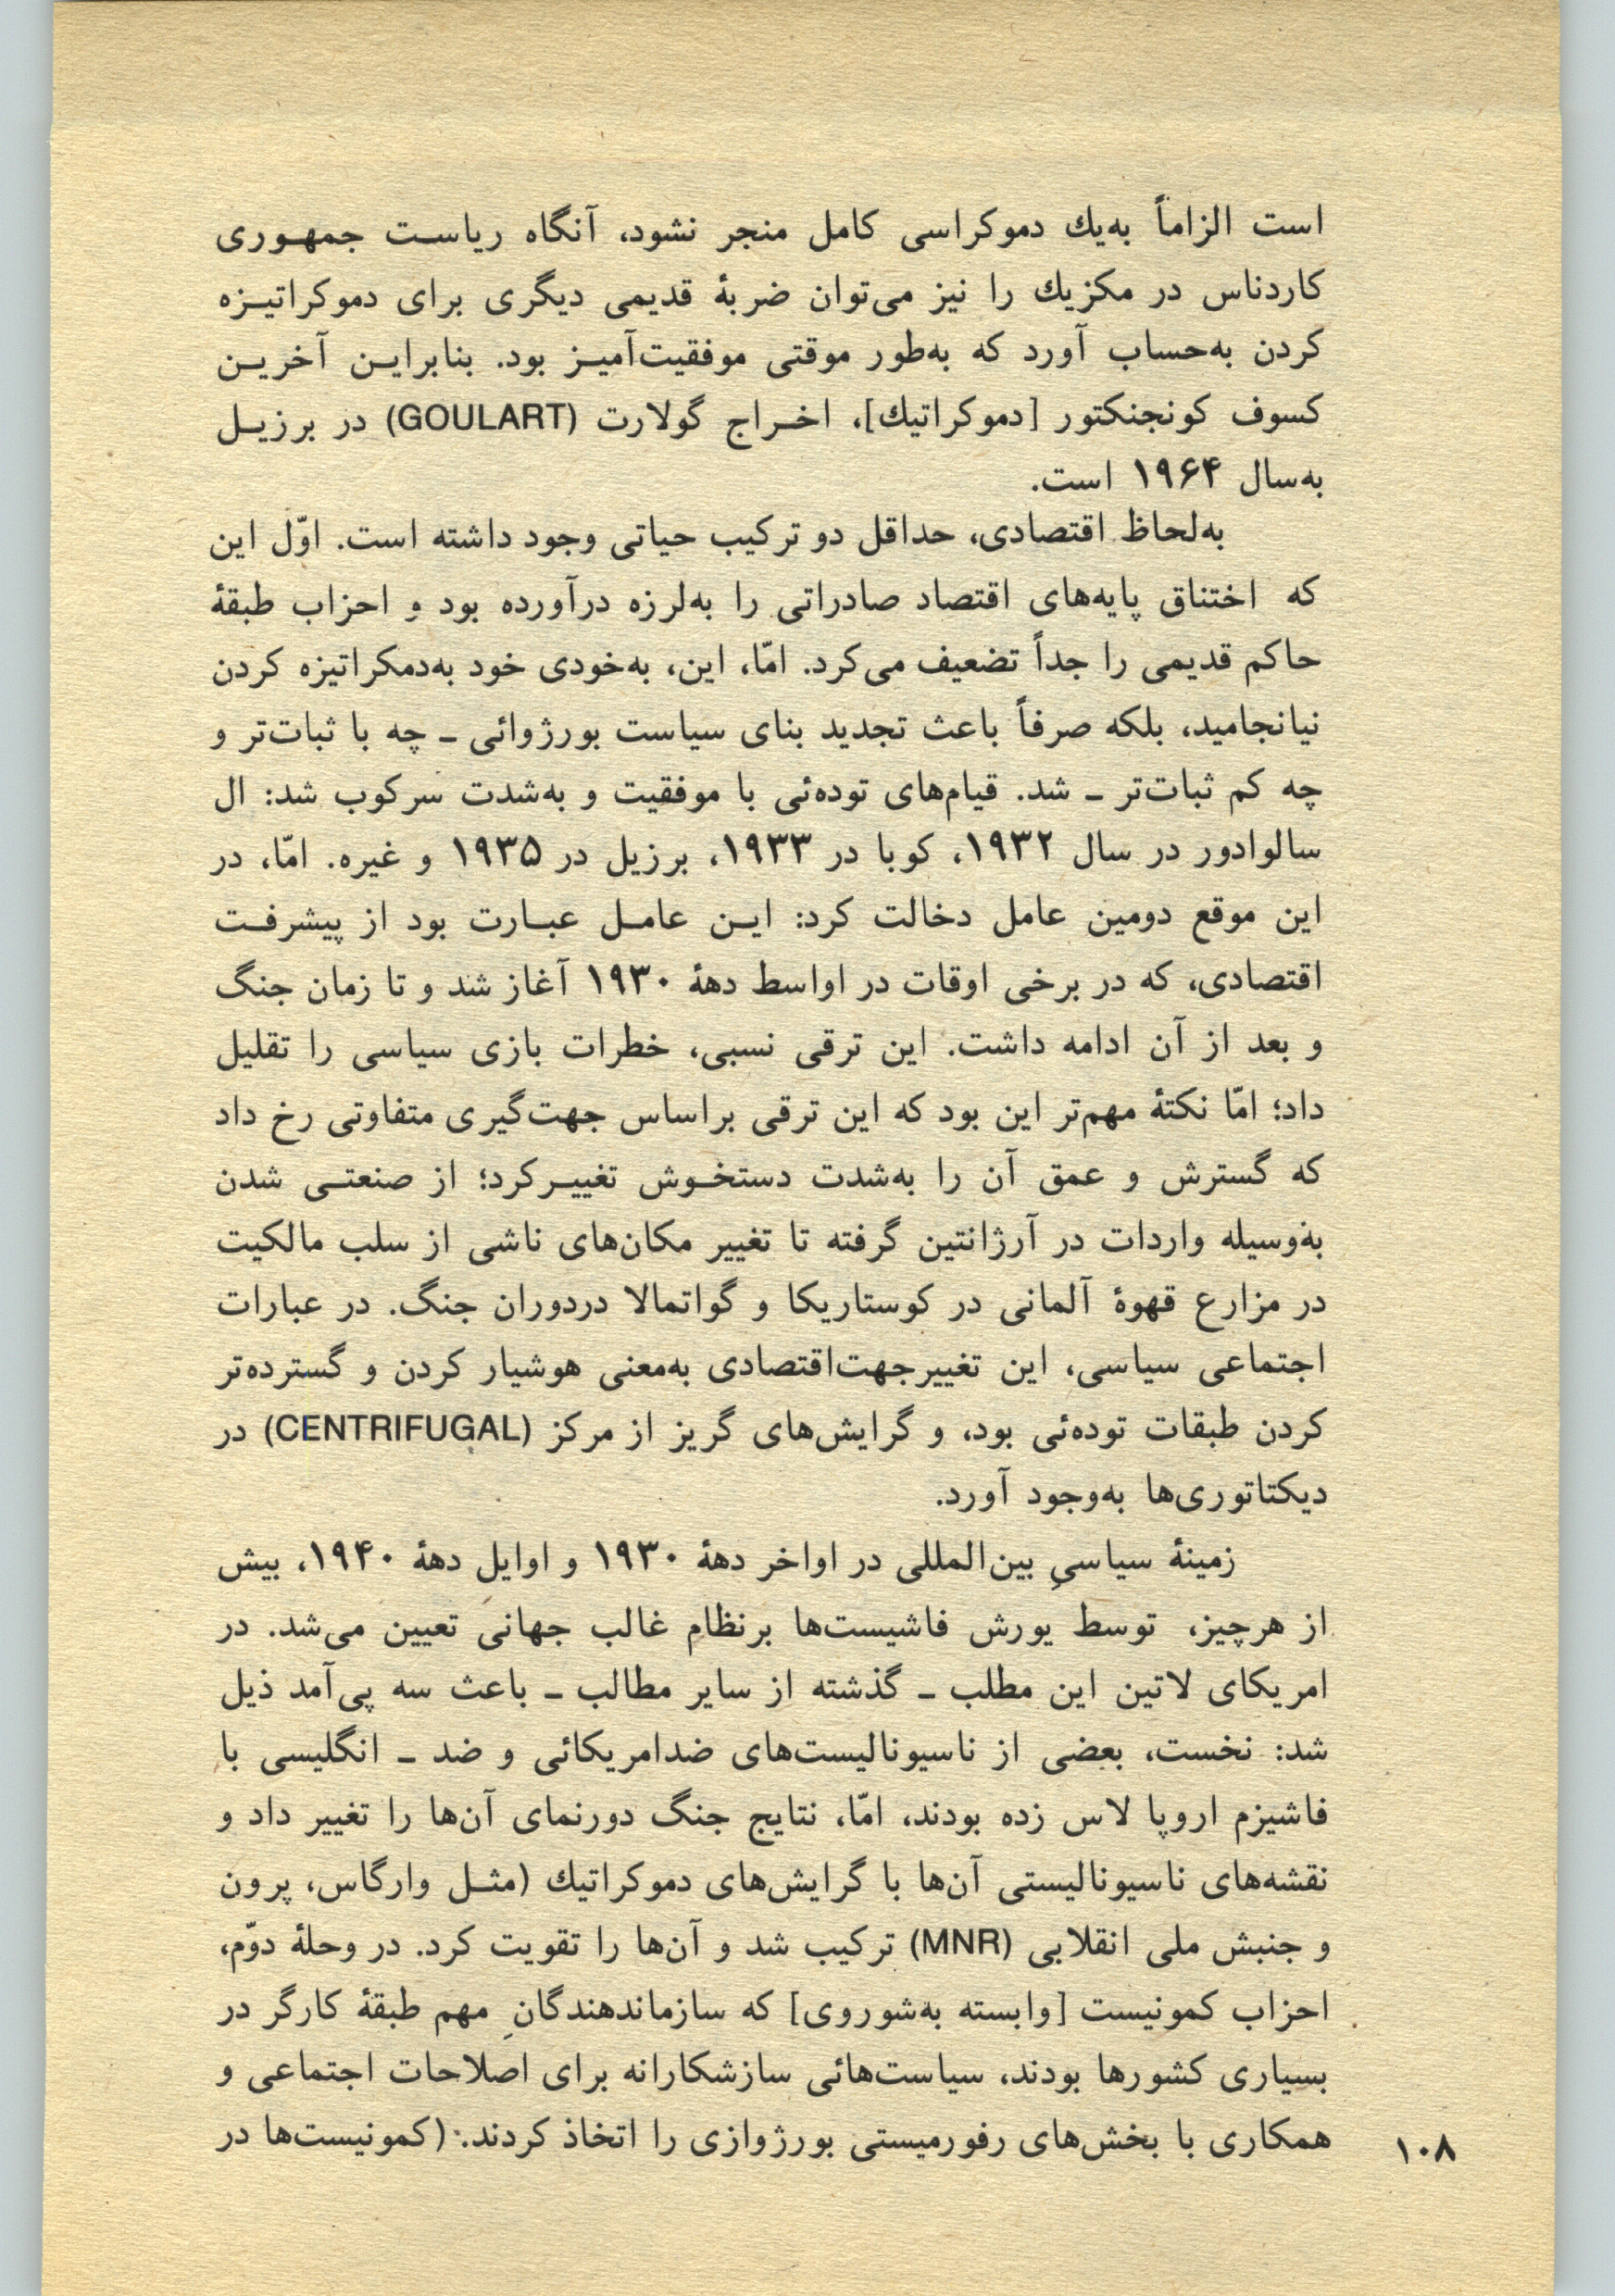 است الزاماً به‌یك دموکراسی کامل منجر نشود، آنگاه ریاست جمهوری
کاردناس در مکزیك را نیز می‌توان ضربهٔ قدیمی دیگری برای دموکراتیزه
کردن به‌حساب آورد که به‌طور موقتی موفقیت‌آمیز بود. بنابراین آخرین
کسوف کونجنکتور [دموکراتیك]، اخراج گولارت (GOULART) در برزیل
به‌سال ۱۹۶۴ است.
به‌لحاظ اقتصادی، حداقل دو ترکیب حیاتی وجود داشته است. اوّل این
که اختناق پایه‌های اقتصاد صادراتی را به‌لرزه درآورده بود و احزاب طبقهٔ
حاکم قدیمی را جداً تضعیف می‌کرد. امّا، این، به‌خودی خود به‌دمکراتیزه کردن
نیانجامید، بلکه صرفاً باعث تجدید بنای سیاست بورژوائی ـ چه با ثبات‌تر و
چه کم ثبات‌تر ـ شد. قیام‌های توده‌ئی با موفقیت و به‌شدت سرکوب شد: ال
سالوادور در سال ۱۹۳۲، کوبا در ۱۹۳۳، برزیل در ۱۹۳۵ و غیره. امّا، در
این موقع دومین عامل دخالت کرد: این عامل عبارت بود از پیشرفت
اقتصادی، که در برخی اوقات در اواسط دههٔ ۱۹۳۰ آغاز شد و تا زمان جنگ
و بعد از آن ادامه داشت. این ترقی نسبی، خطرات بازی سیاسی را تقلیل
داد؛ امّا نکتهٔ مهم‌تر این بود که این ترقی براساس جهت‌گیری متفاوتی رخ داد
که گسترش و عمق آن را به‌شدت دستخوش تغییرکرد؛ از صنعتی شدن
به‌وسیله واردات در آرژانتین گرفته تا تغییر مکان‌های ناشی از سلب مالکیت
در مزارع قهوهٔ آلمانی در کوستاریکا و گواتمالا دردوران جنگ. در عبارات
اجتماعی سیاسی، این تغییرجهت‌اقتصادی به‌معنی هوشیار کردن و گسترده‌تر
کردن طبقات توده‌ئی بود، و گرایش‌های گریز از مرکز (CENTRIFUGAL) در
دیکتاتوری‌ها به‌وجود آورد.
زمینهٔ سیاسیِ بین‌المللی در اواخر دههٔ ۱۹۳۰ و اوایل دههٔ ۱۹۴۰، بیش
از هرچیز، توسط یورش فاشیست‌ها برنظام غالب جهانی تعیین می‌شد. در
امریکای لاتین این مطلب ـ گذشته از سایر مطالب ـ باعث سه پی‌آمد ذیل
شد: نخست، بعضی از ناسیونالیست‌های ضدامریکائی و ضد ـ انگلیسی با
فاشیزم اروپا لاس زده بودند، امّا، نتایج جنگ دورنمای آن‌ها را تغییر داد و
نقشه‌های ناسیونالیستی آن‌ها با گرایش‌های دموکراتیك (مثل وارگاس، پرون
و جنبش ملی انقلابی (MNR) ترکیب شد و آن‌ها را تقویت کرد. در وحلهٔ دوّم،
احزاب کمونیست [وابسته به‌شوروی] که سازماندهندگانِ مهم طبقهٔ کارگر در
بسیاری کشورها بودند، سیاست‌هائی سازشکارانه برای اصلاحات اجتماعی و
همکاری با بخش‌های رفورمیستی بورژوازی را اتخاذ کردند. (کمونیست‌ها در
۱۰۸